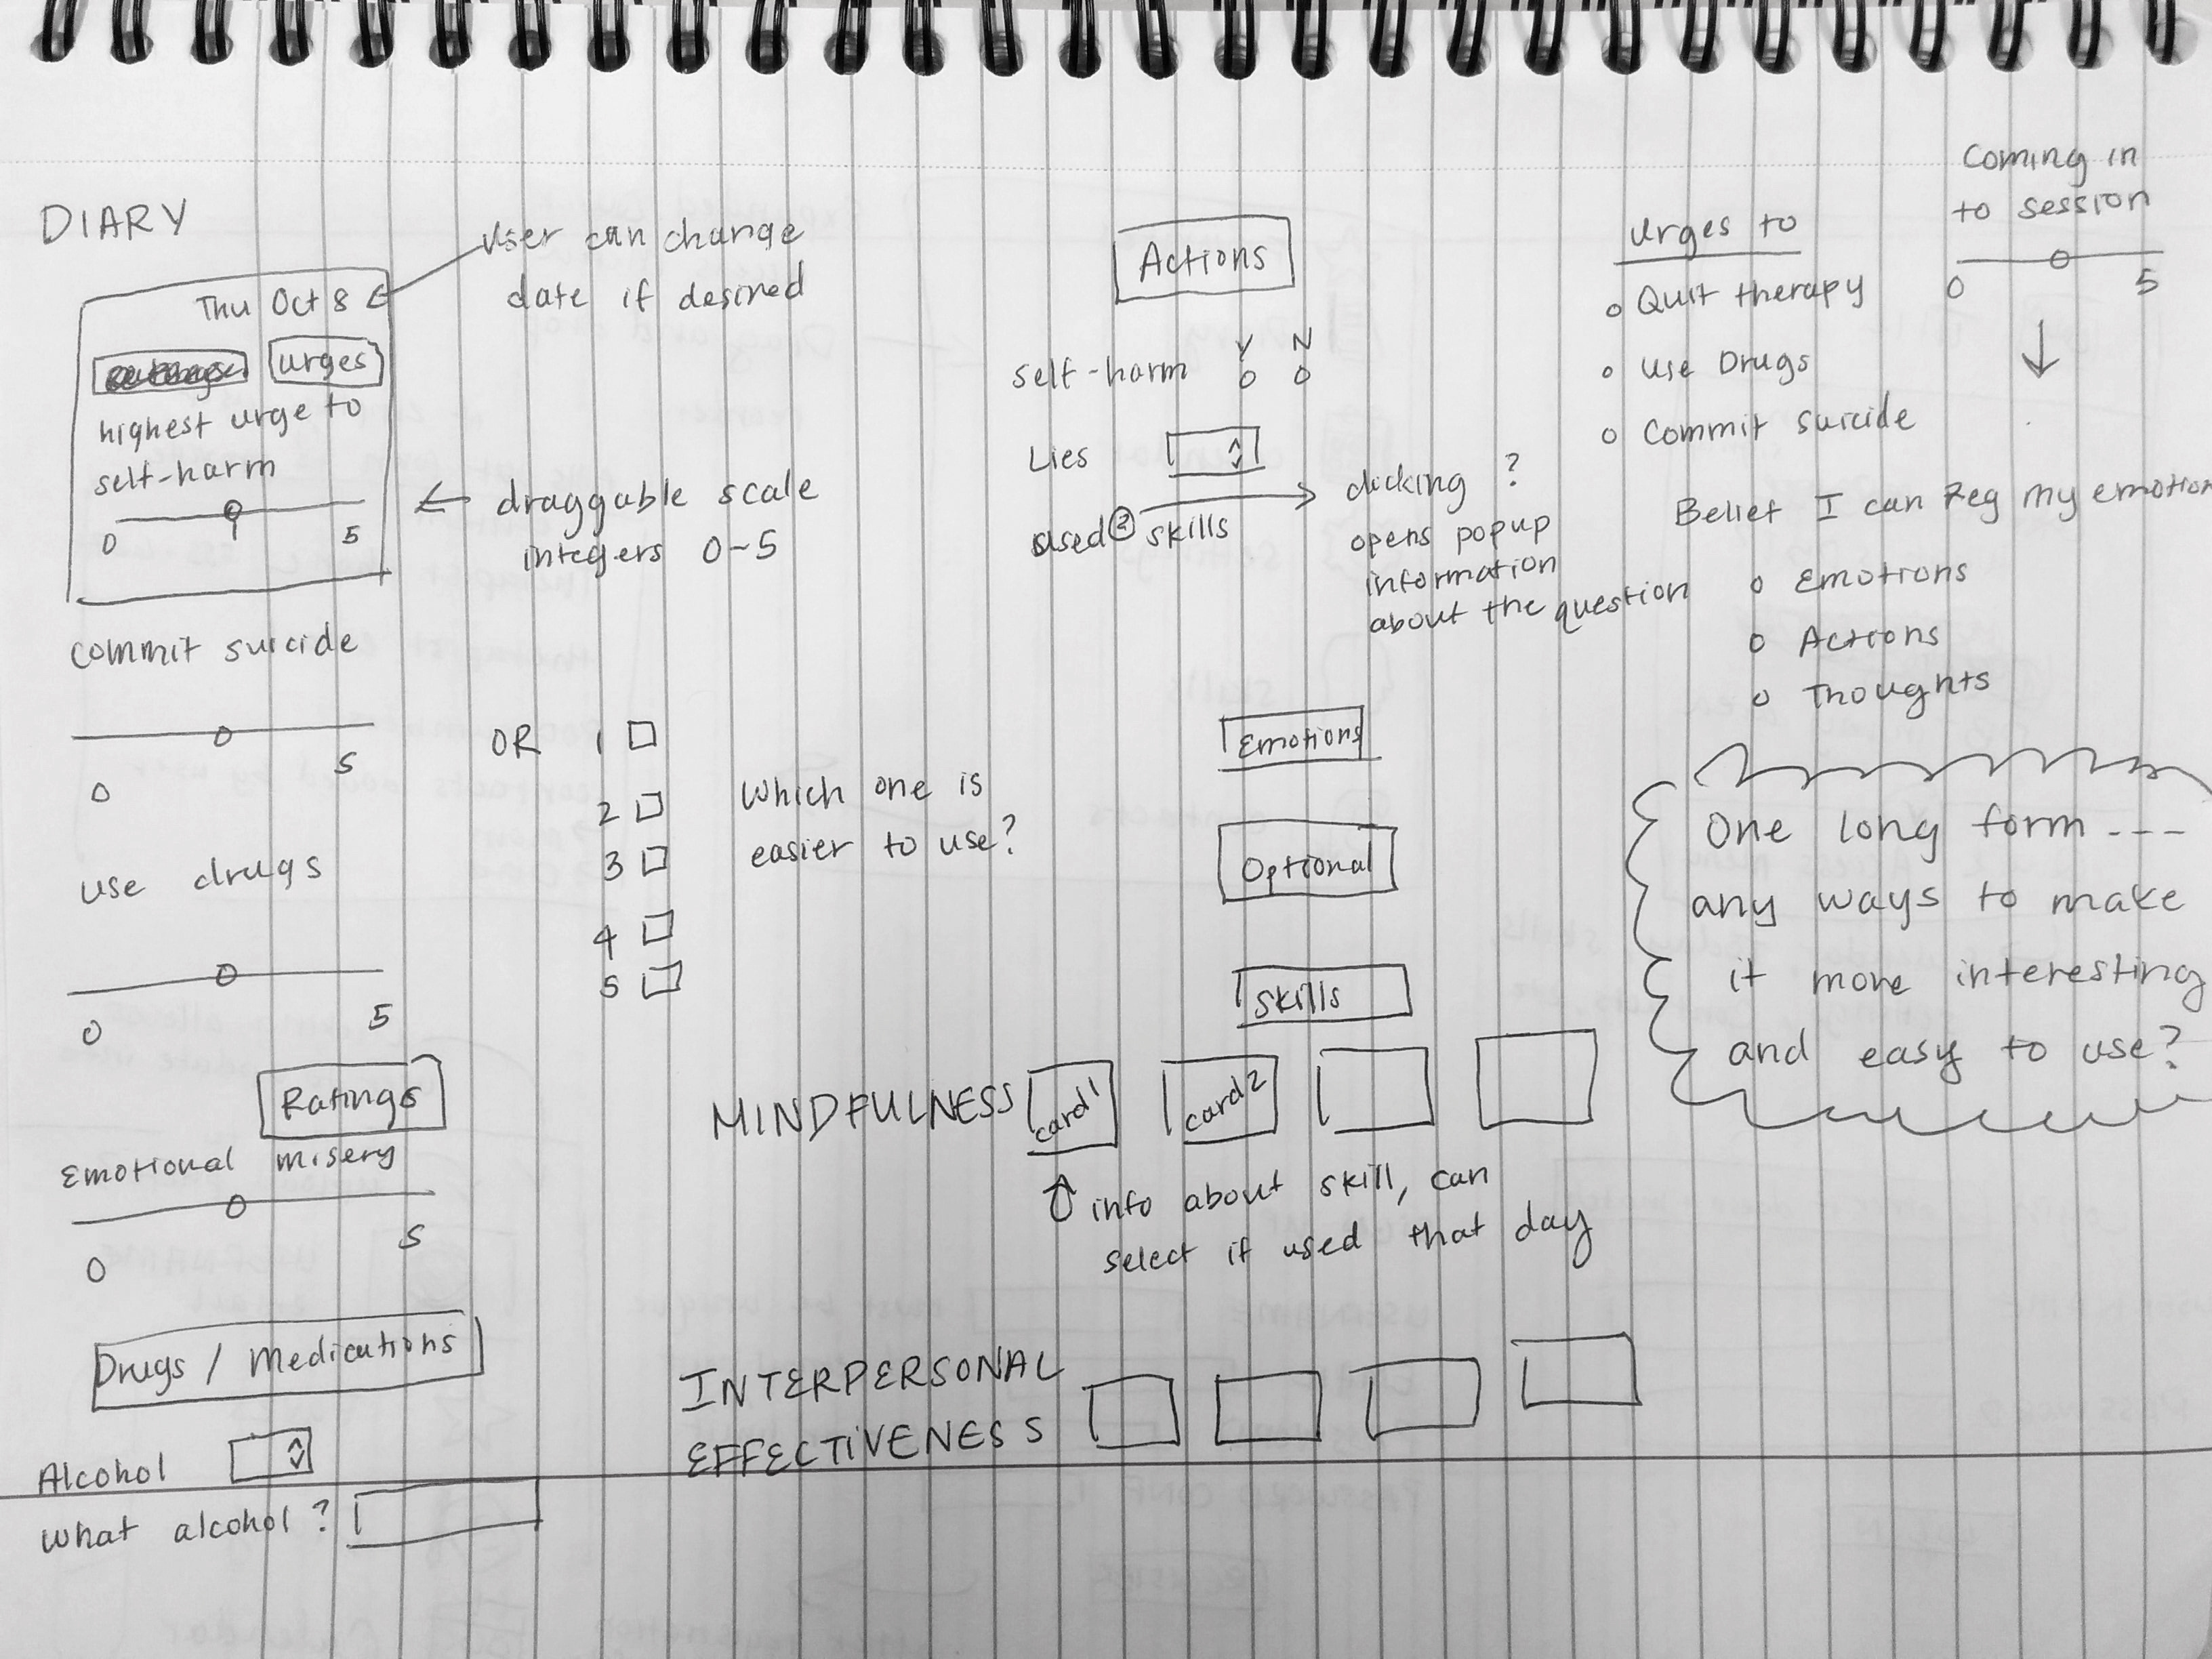 DIARY
Thu Oct 8
User can change
date if desired
urges
highest urge to
self-harm
0 5
draggable scale
integers 0-5
commit suicide
0 5
OR 1
2
3
4
5
Which one is
easier to use?
use drugs
0 5
Ratings
Emotional misery
0 5
Drugs / Medications
Alcohol
What alcohol?
Actions
Y N
self-harm
Lies
used ? skills
clicking ?
opens popup
information
about the question
Emotions
Optional
Skills
MINDFULNESS card1 card2
info about skill, can
select if used that day
INTERPERSONAL
EFFECTIVENESS
Urges to
Quit therapy
Use Drugs
Commit suicide
Coming in
to session
0 5
Belief I can Reg my emotion
Emotions
Actions
Thoughts
One long form ---
any ways to make
it more interesting
and easy to use?